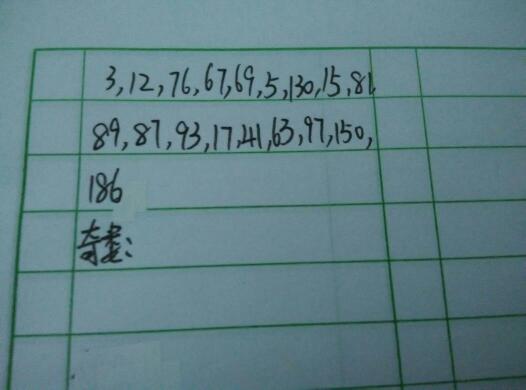 3,12,76,67,69,5,130,15,81
89,87,93,17,41,63,97,150,
186
奇数: